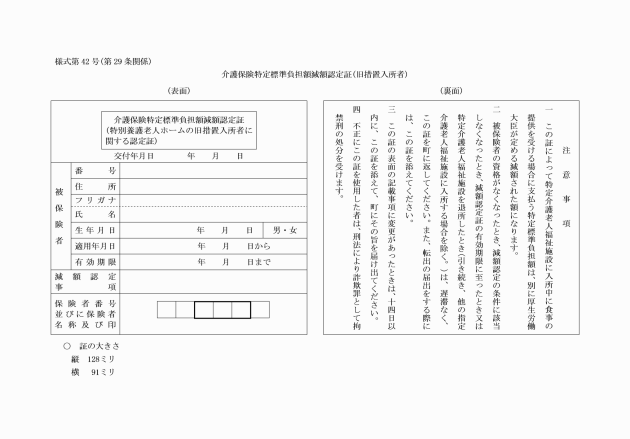 様式第42号(第29条関係)
介護保険特定標準負担額減額認定証(旧措置入所者)
(表面)
介護保険特定標準負担額減額認定証
(特別養護老人ホームの旧措置入所者に
関する認定証)
交付年月日 年 月 日
被保険者
番号
住所
フリガナ
氏名
生年月日 年 月 日 男・女
適用年月日 年 月 日から
有効期限 年 月 日まで
減額認定
事項
保険者番号
並びに保険者
名称及び印
○ 証の大きさ
縦 128ミリ
横 91ミリ
(裏面)
注意事項
一 この証によって特定介護老人福祉施設に入所中に食事の
提供を受ける場合に支払う特定標準負担額は、別に厚生労働
大臣が定める減額された額になります。
二 被保険者の資格がなくなったとき、減額認定の条件に該当
しなくなったとき、減額認定証の有効期限に至ったとき又は
特定介護老人福祉施設を退所したとき(引き続き、他の指定
介護老人福祉施設に入所する場合を除く。)は、遅滞なく、
この証を町に返してください。また、転出の届出をする際に
は、この証を添えてください。
三 この証の表面の記載事項に変更があったときは、十四日以
内に、この証を添えて、町にその旨を届け出てください。
四 不正にこの証を使用した者は、刑法により詐欺罪として拘
禁刑の処分を受けます。